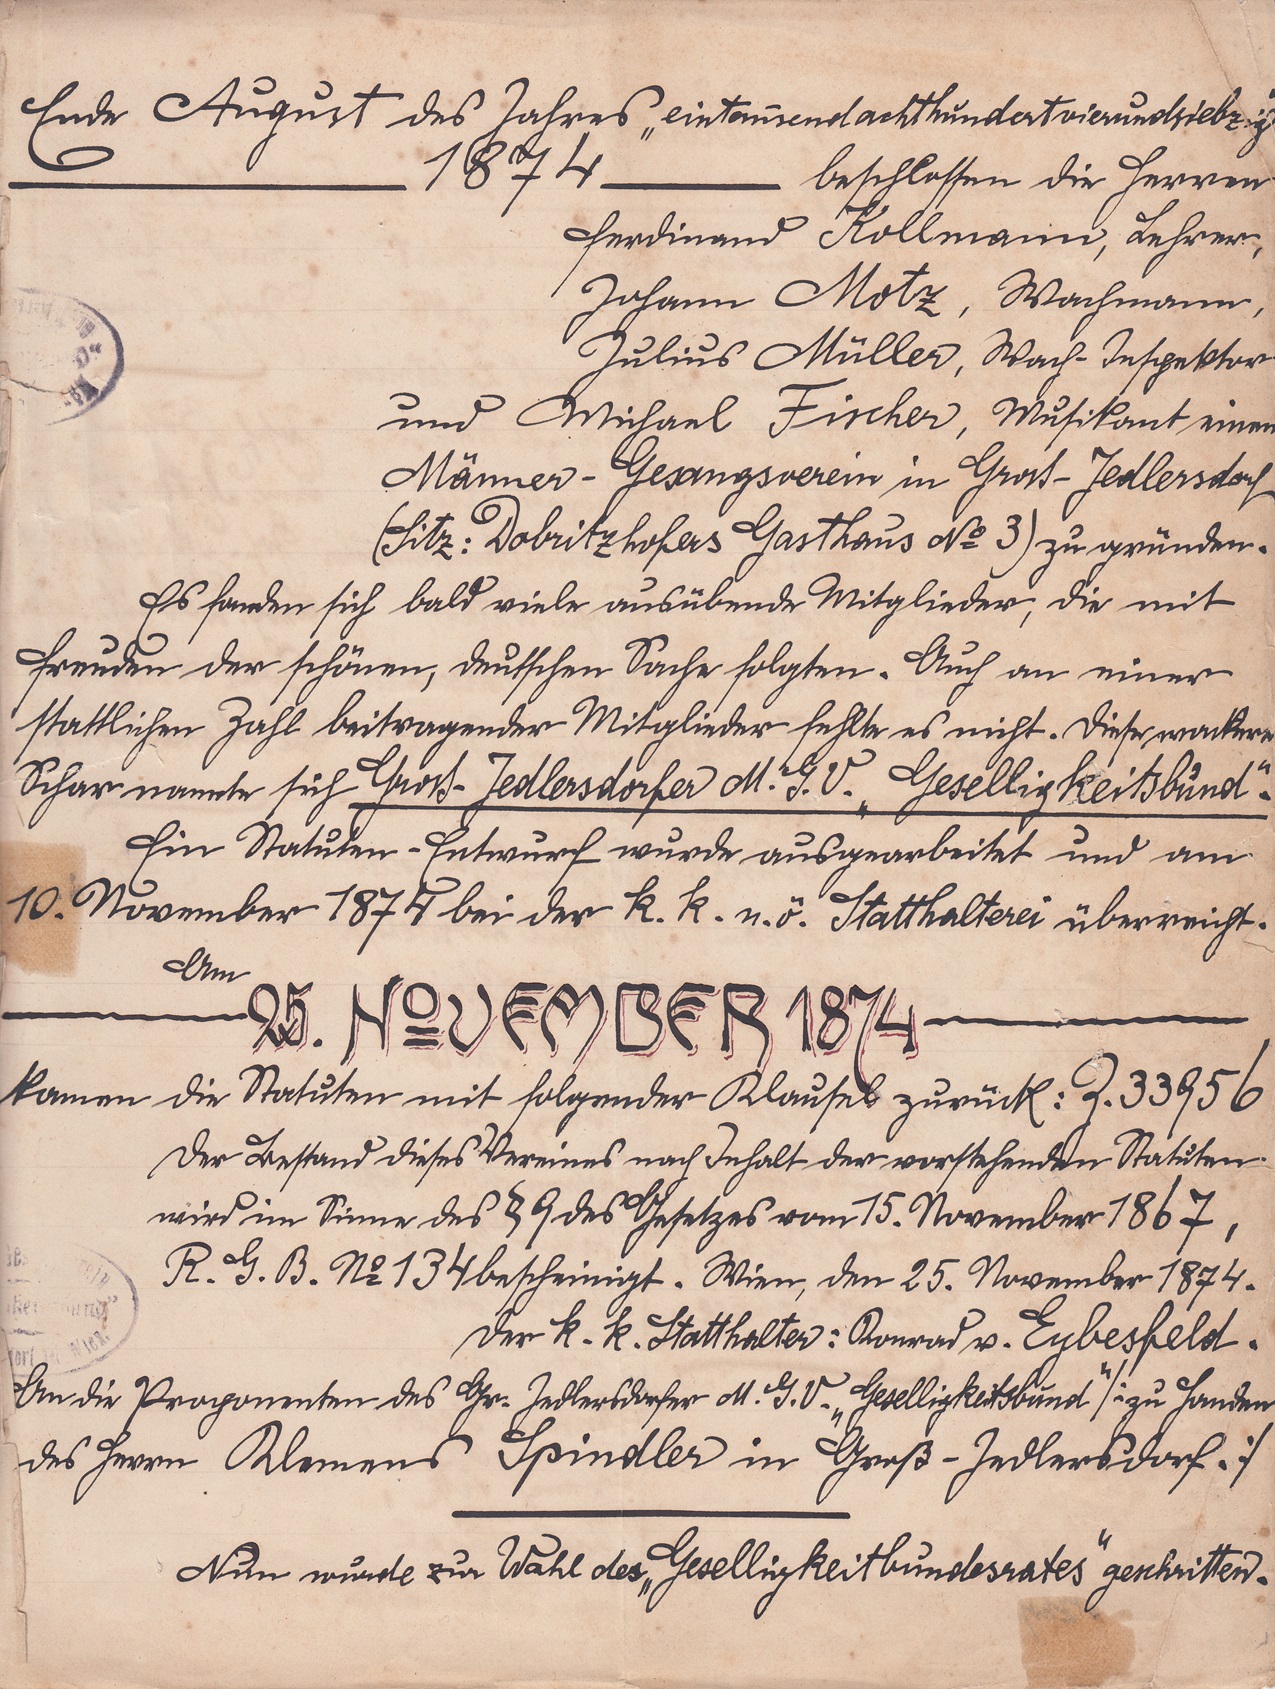 Ende August des Jahres „eintausendachthundertvierundsiebzig"
1874 beschlossen die Herren
Ferdinand Kollmann, Lehrer,
Johann Motz, Wachmann,
Julius Müller, Wach-Inspektor
und Michael Fischer, Musikant einen
Männer-Gesangsverein in Groß-Jedlersdorf
(Sitz: Dobritzhofers Gasthaus No 3) zu gründen.
Es fanden sich bald viele ausübende Mitglieder, die mit
Freuden der schönen, deutschen Sache folgten. Auch an einer
stattlichen Zahl beitragender Mitglieder fehlte es nicht. Diese wackere
Schar nannte sich Groß-Jedlersdorfer M.G.V. „Geselligkeitsbund".
Ein Statuten-Entwurf wurde ausgearbeitet und am
10. November 1874 bei der k. k. n.ö. Statthalterei überreicht.
Am
25. NOVEMBER 1874
kamen die Statuten mit folgender Klausel zurück: Z. 33956
Der Bestand dieses Vereines nach Inhalt der vorstehenden Statuten
wird im Sinne des § 9 des Gesetzes vom 15. November 1867,
R. G. B. No 134 bescheinigt. Wien, den 25. November 1874.
Der k. k. Statthalter: Konrad v. Eybesfeld.
An die Proponenten des Gr. Jedlersdorfer M.G.V. „Geselligkeitsbund" /: zu Handen
des Herrn Klemens Spindler in Groß-Jedlersdorf. :/
Nun wurde zur Wahl des „Geselligkeitbundesrates" geschritten.